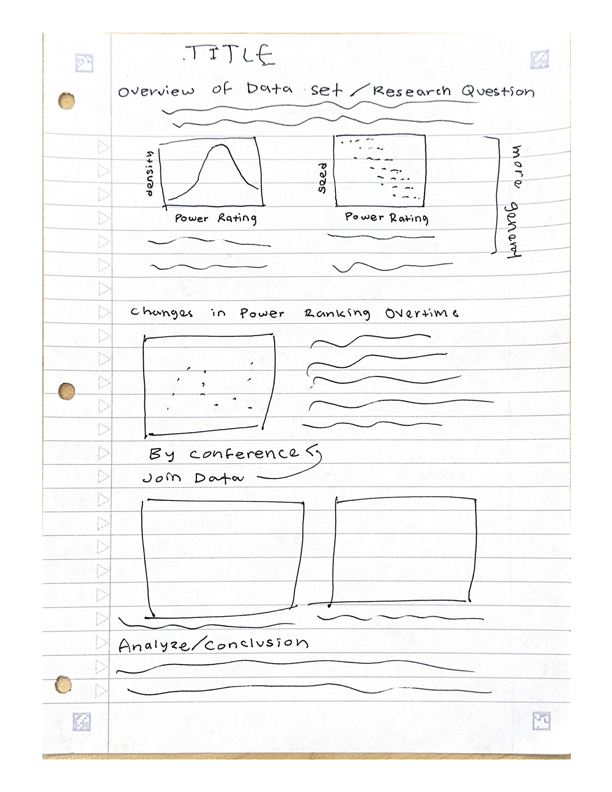 TITLE
Overview of Data set / Research Question
density
seed
more general
Power Rating
Power Rating
Changes in Power Ranking Overtime
By conference
Join Data
Analyze/Conclusion